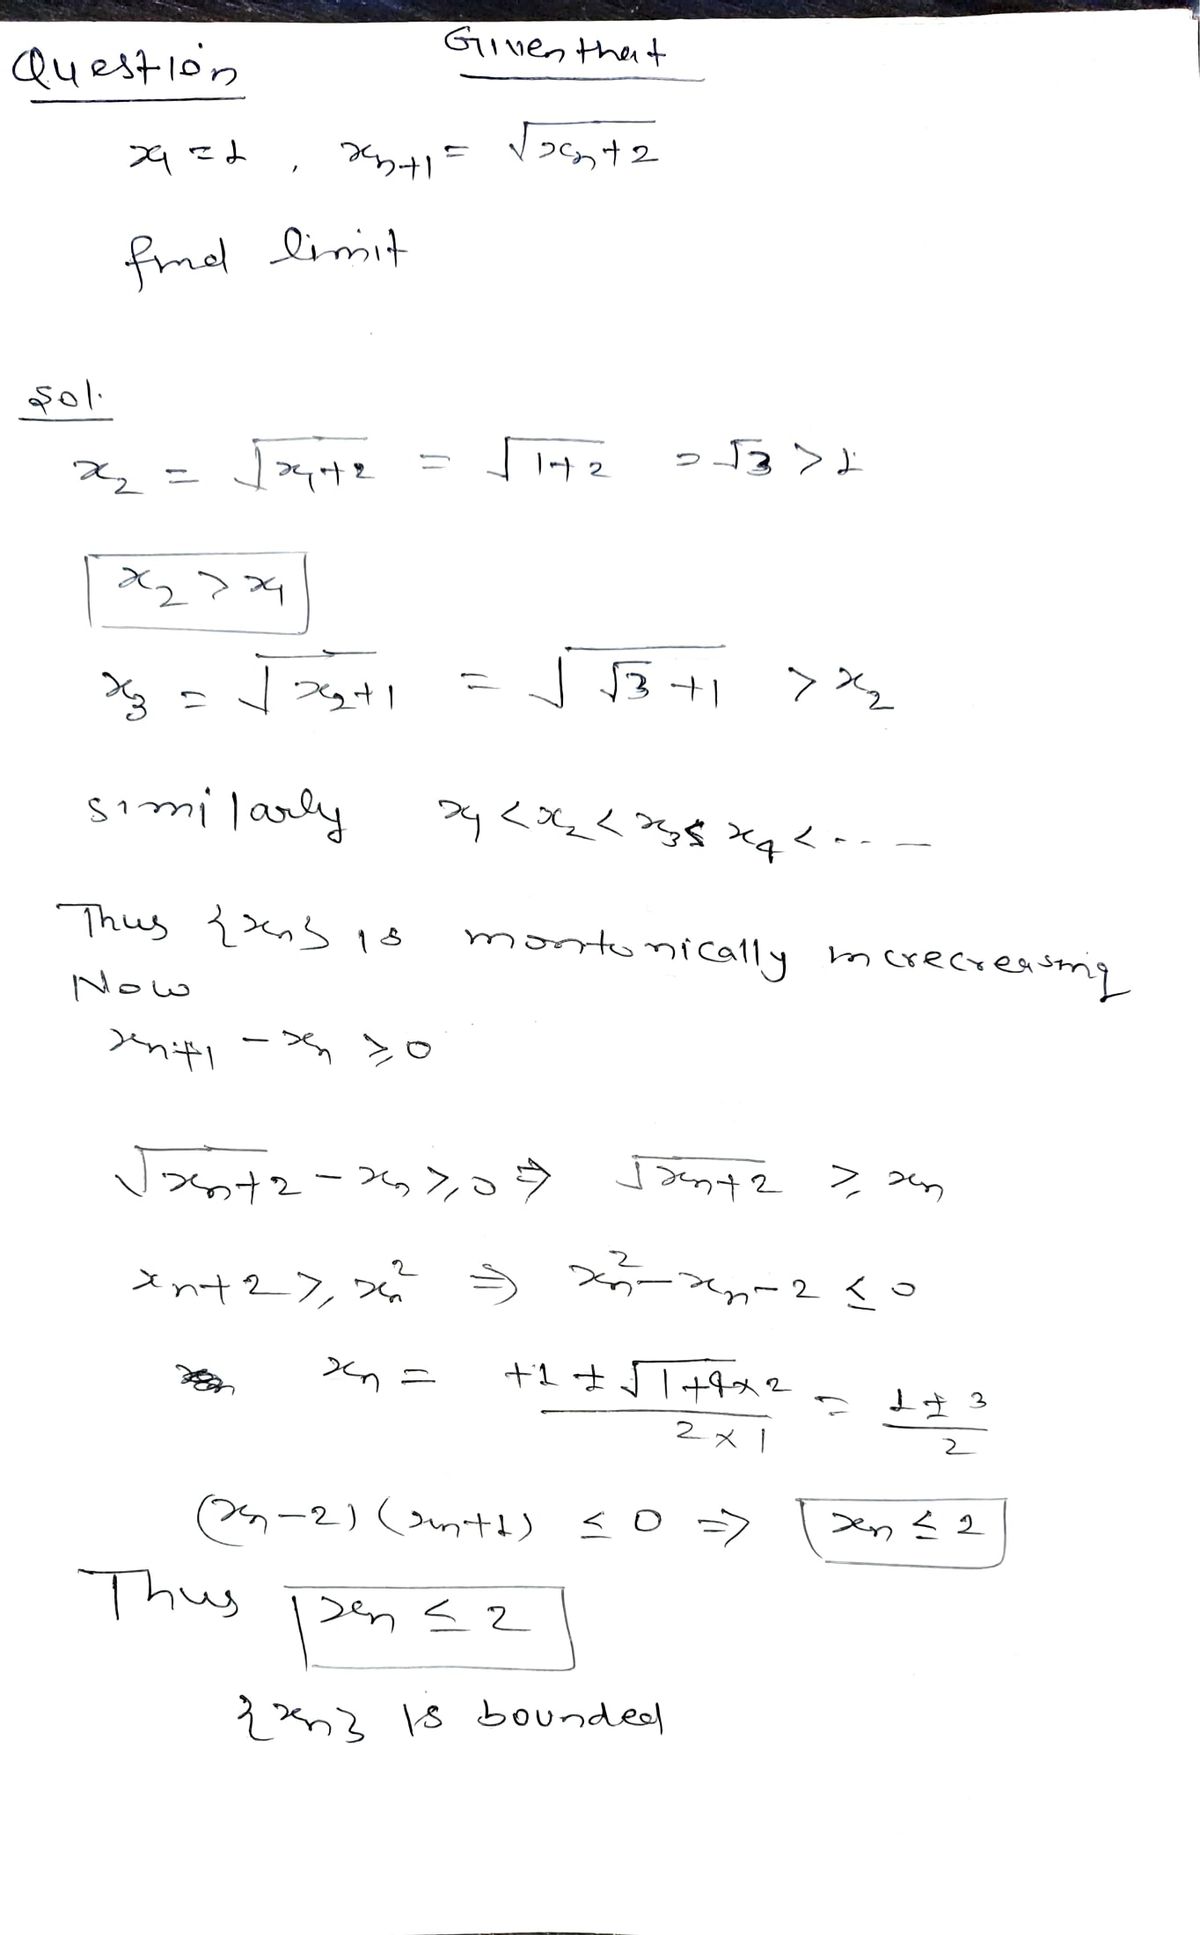 Question Given that
x₁ = 1 , xₙ₊₁ = √(xₙ+2)
find limit
Sol.
x₂ = √(x₁+2) = √(1+2) = √3 > 1
x₂ > x₁
x₃ = √(x₂+1) = √(√3+1) > x₂
similarly x₁ < x₂ < x₃ ≤ x₄ < ...
Thus {xₙ} is montonically increcreasing
Now
xₙ₊₁ - xₙ ≥ 0
√(xₙ+2) - xₙ ≥ 0 ⇒ √(xₙ+2) ≥ xₙ
xₙ+2 ≥ xₙ² ⇒ xₙ² - xₙ - 2 ≤ 0
xₙ = (+1 ± √(1+4×2))/(2×1) = (1±3)/2
(xₙ-2)(xₙ+1) ≤ 0 ⇒ xₙ ≤ 2
Thus xₙ ≤ 2
{xₙ} is bounded